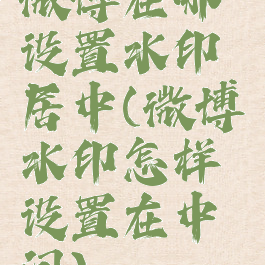 微博在哪
设置水印
居中(微博
水印怎样
设置在中
间)